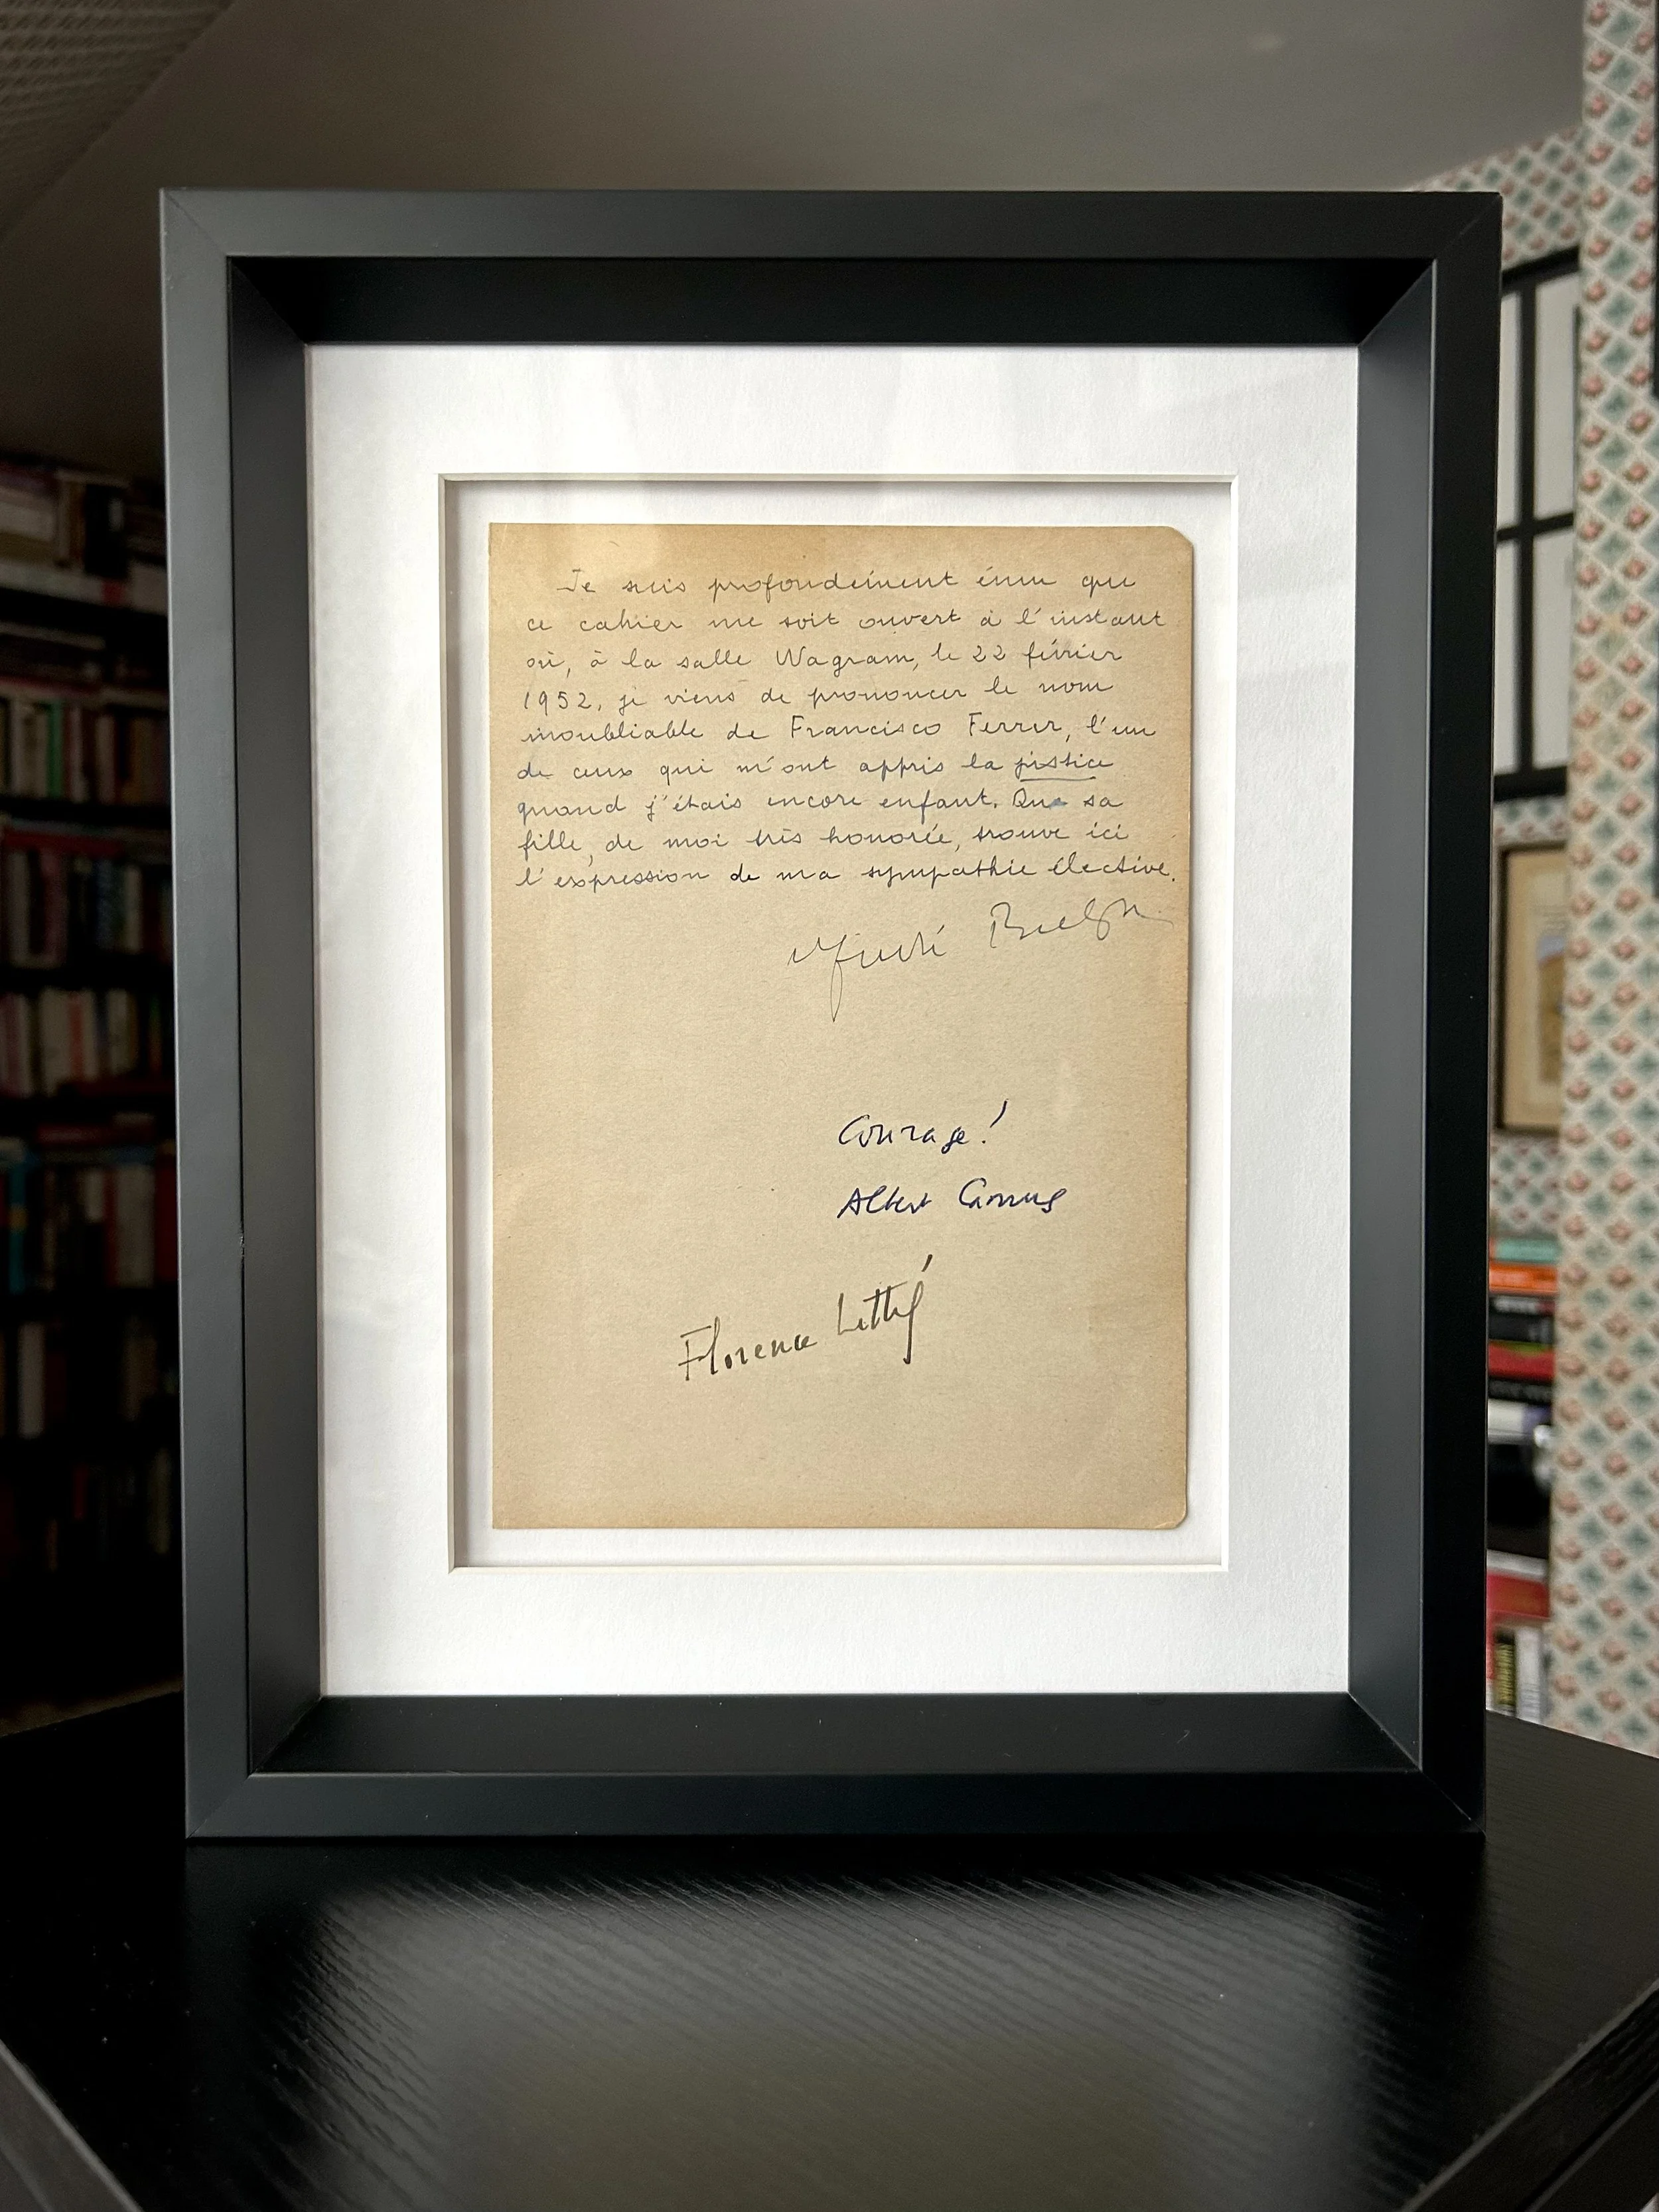 Je suis profondément ému que
ce cahier me soit ouvert à l'instant
où, à la salle Wagram, le 22 février
1952, je viens de prononcer le nom
inoubliable de Francisco Ferrer, l'un
de ceux qui m'ont appris la justice
quand j'étais encore enfant. Que sa
fille, de moi très honorée, trouve ici
l'expression de ma sympathie élective.
André Breton
Courage!
Albert Camus
Florence